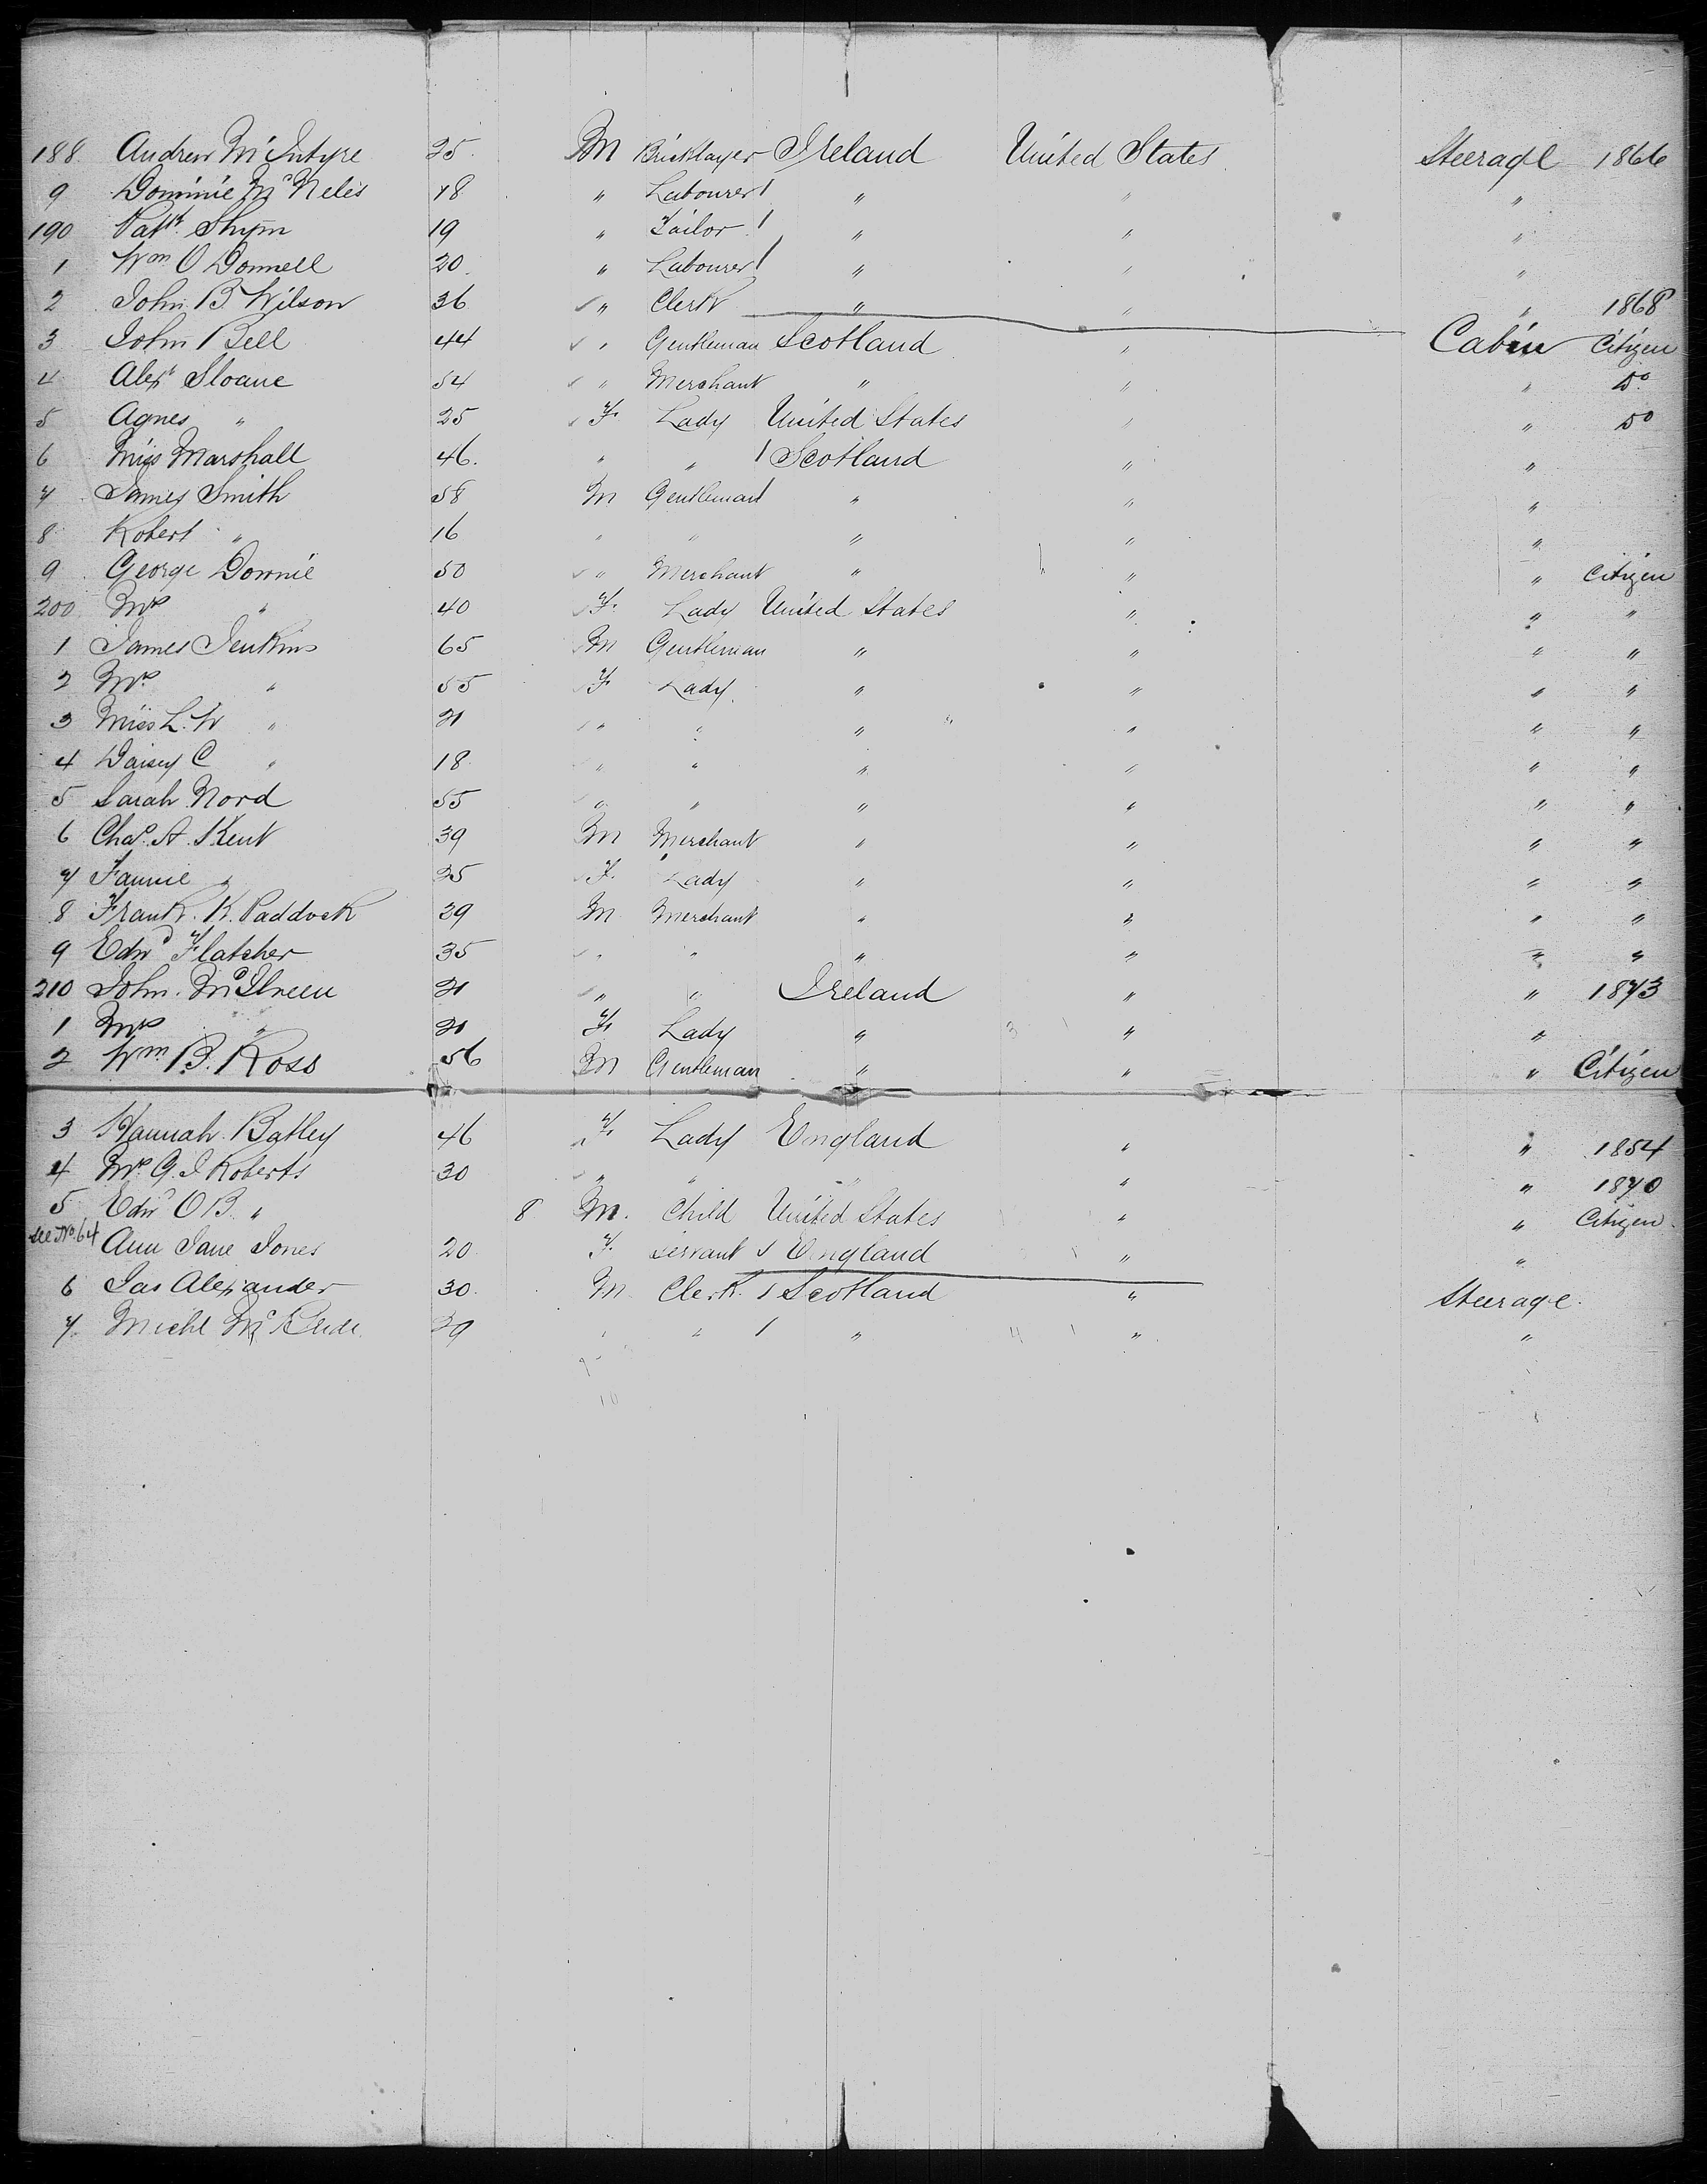 188 Andrew McIntyre 25 M Bricklayer Ireland United States Steerage 1866
9 Dominic McNelis 18 " Labourer " " "
190 Patk 19 " Tailor " " "
1 Wm O Donnell 20 " Labourer " " "
2 John B Wilson 36 " Clerk " " " 1868
3 John Bell 44 " Gentleman Scotland " Cabin Citizen
4 Alexr Sloane 54 " Merchant " " " Do
5 Agnes " 25 F Lady United States " " Do
6 Miss Marshall 46 " " Scotland " "
7 James Smith 58 M Gentleman " " "
8 Robert " 16 " " " " "
9 George Downie 50 " Merchant " " " Citizen
200 Mrs " 40 F Lady United States " " "
1 James Jenkins 65 M Gentleman " " " "
2 Mrs " 55 F Lady " " " "
3 Miss L. W " 21 " " " " " "
4 Daisey C " 18 " " " " " "
5 Sarah Nord 55 " " " " " "
6 Chas. A. Kent 39 M Merchant " " " "
7 Fannie " 35 F Lady " " " "
8 Frank. K. Paddock 39 M Merchant " " " "
9 Edwd Flatcher 35 " " " " " "
210 John. 21 " " Ireland " " 1873
1 Mrs " 21 F Lady " " "
2 Wm B. Ross 56 M Gentleman " " " Citizen
3 Hannah Batley 46 F Lady England " " 1854
4 Mrs G. J Roberts 30 " " " " " 1870
5 Edwd O B. " 8 M. Child United States " " Citizen
see No 64 Ann Jane Jones 20 F. Servant England " "
6 Jas Alexander 30 M Clerk Scotland " Steerage
7 Michl 29 " " " " "